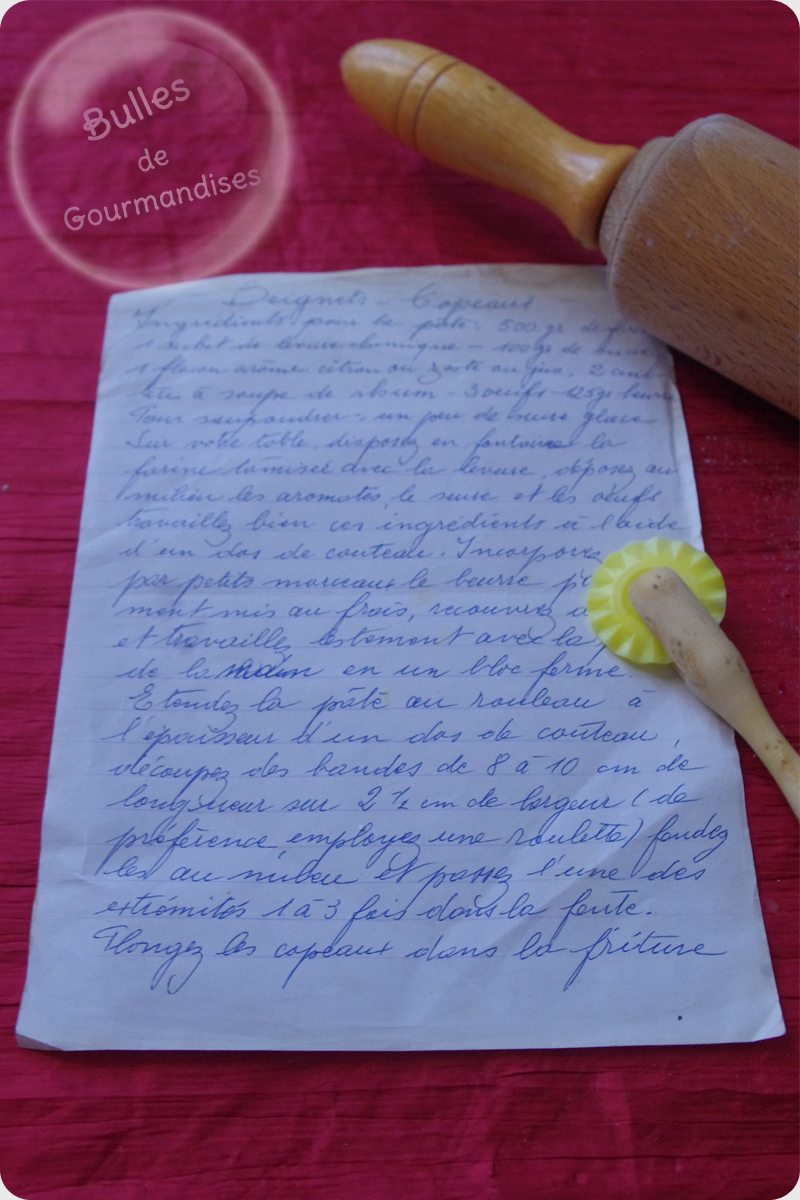 Bulles
de
Gourmandises
Beignets - Copeaux
Ingrédients pour la pâte: 500 gr de
1 sachet de levure chimique - 100 gr de sucre
1 flacon arôme citron ou zeste ou jus, 2 cuil
lère à soupe de rhum - 3 oeufs - 125 gr beurre
Pour saupoudrer: un peu de sucre glace
Sur votre table, disposez en fontaine la
farine tamisée avec la levure, déposez au
milieu les aromates, le sucre et les oeufs
travaillez bien ces ingrédients à l'aide
d'un dos de couteau. Incorporez
par petits morceaux le beurre
ment mis au frais, recouvrez
et travaillez lestement avec la
de la main en un bloc ferme.
Etendez la pâte au rouleau à
l'épaisseur d'un dos de couteau,
découpez des bandes de 8 à 10 cm de
longueur sur 2 1/2 cm de largeur (de
préférence employez une roulette) fendez
les au milieu et passez l'une des
extrémités 1 à 3 fois dans la fente.
Plongez les copeaux dans la friture